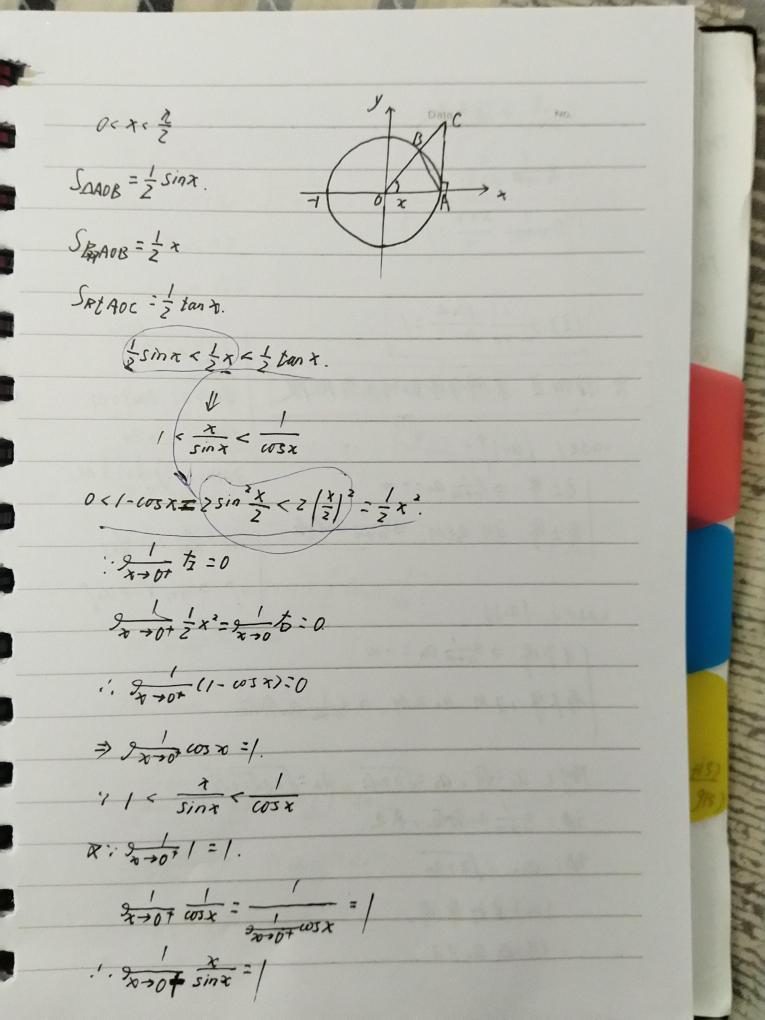 0<x<π/2
S△AOB=1/2 sinx.
S扇AOB=1/2 x
SRtAOC=1/2 tanx.
1/2 sinx<1/2 x<1/2 tanx.
⇓
1<x/sinx<1/cosx
0<1-cosx=2sin²x/2<2(x/2)²=1/2 x².
∵ lim x→0+ 左=0
lim x→0+ 1/2 x²=lim x→0 右=0.
∴ lim x→0+ (1-cosx)=0
⇒ lim x→0+ cosx=1.
∵ 1<x/sinx<1/cosx
又∵ lim x→0+ 1=1.
lim x→0+ 1/cosx=1/lim x→0+ cosx=1
∴ lim x→0+ x/sinx=1
y
C
B
-1
O
x
A
x